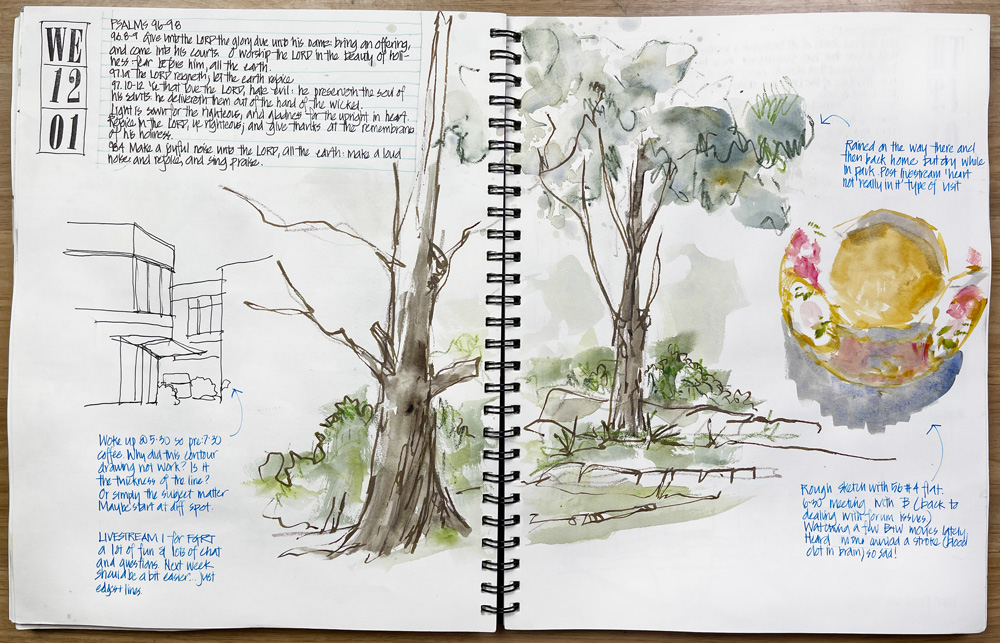 WE
12
01
PSALMS 96-98
96.8-9 Give unto the LORD the glory due unto his name: bring an offering,
and come into his courts. O worship the LORD in the beauty of holi-
ness fear before him, all the earth.
97.1a The LORD reigneth; let the earth rejoice
97.10-12 Ye that love the LORD, hate evil: he preserveth the soul of
his saints: he delivereth them out of the hand of the wicked.
Light is sown for the righteous, and gladness for the upright in heart.
Rejoice in the LORD, ye righteous; and give thanks at the remembrance
of his holiness.
98.4 Make a joyful noise unto the LORD, all the earth: make a loud
noise and rejoice, and sing praise.
Woke up @ 5:30 so pre 7:30
coffee. Why did this contour
drawing not work? Is it
the thickness of the line?
Or simply the subject matter
Maybe start at diff spot.
LIVESTREAM 1 for
a lot of fun & lots of chat
and questions. Next week
should be a bit easier... just
edges + lines.
Rained on the way there and
then back home but dry while
in park. Post livestream 'heart
not really in it' type of visit
Rough sketch with 56 #4 flat.
6:30 meeting with B (back to
dealing with forum issues)
Watching a few B+W movies lately.
Heard a stroke (blood
clot in brain) so sad!